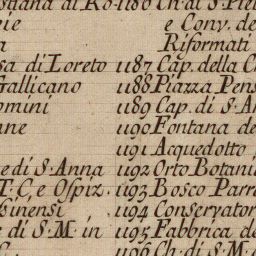 stiana al Ro- 1186 Ch. di S. Piet
eie e Conv. de
a Riformati
sa di Loreto 1187 Cap. della C
Gallicano 1188 Piazza Pens
omini 1189 Cap. di S. A
nne 1190 Fontana de
1191 Acquedotto
e di S. Anna 1192 Orto Botani
T. C. e Ospiz. 1193 Bosco Parr
sinensi 1194 Conservator
e di S. M. in 1195 Fabbrica de
1196 Ch. di S. M.